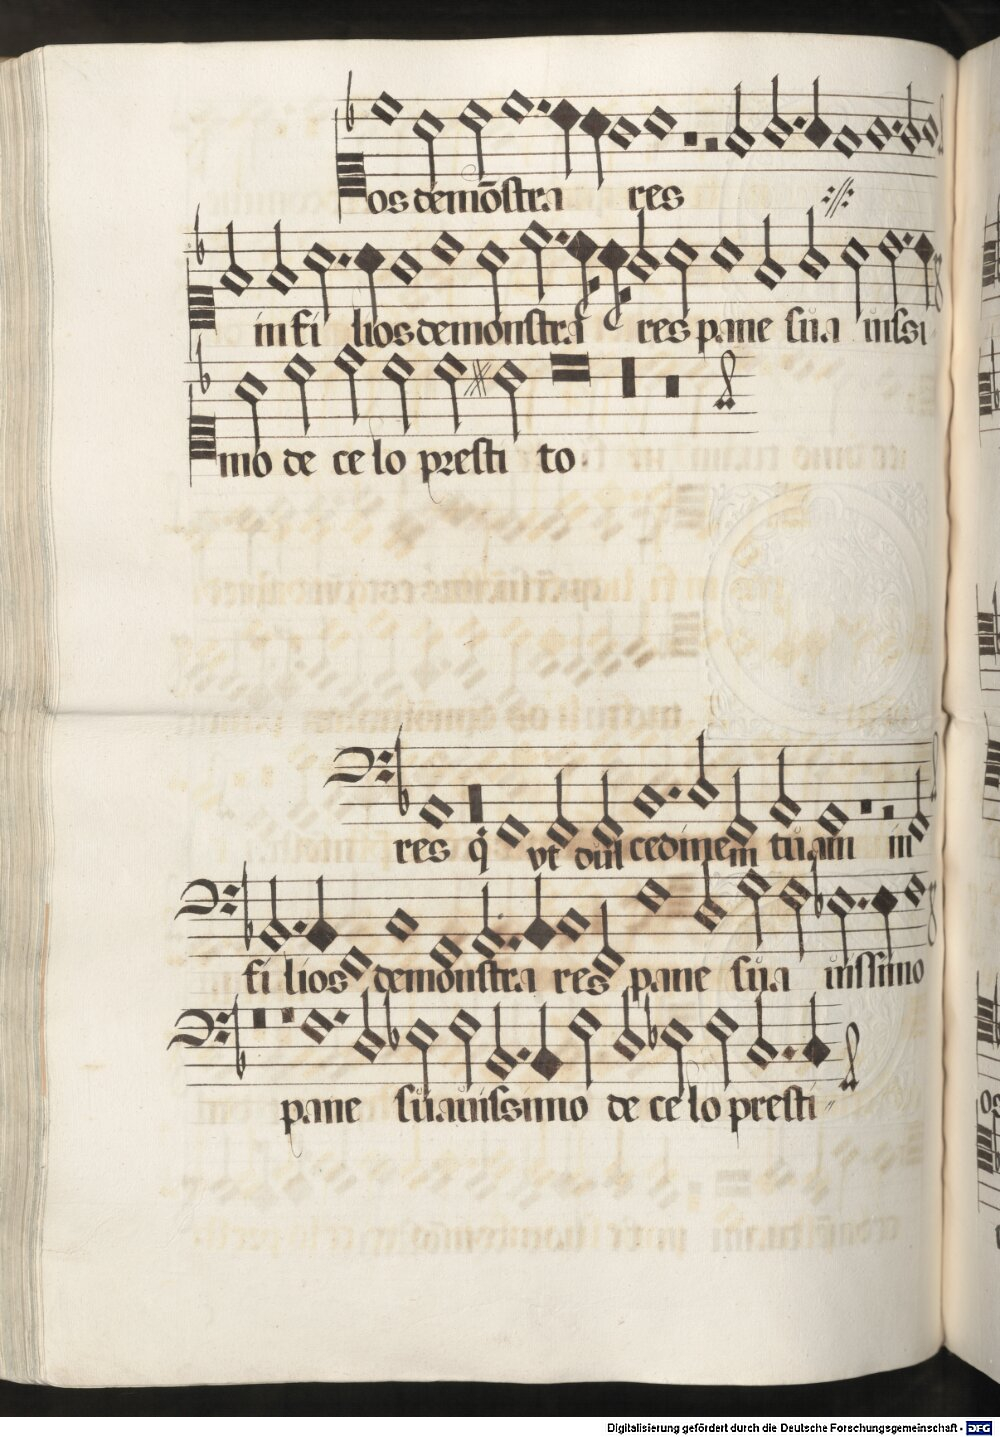 os demōstra res
in fi lios demonstra res pane sua uissi
mo de ce lo presti to.
res q̄ vt dul cedinem tuam in
fi lios demonstra res pane sua uissimo
pane suauissimo de ce lo presti
Digitalisierung gefördert durch die Deutsche Forschungsgemeinschaft - DFG